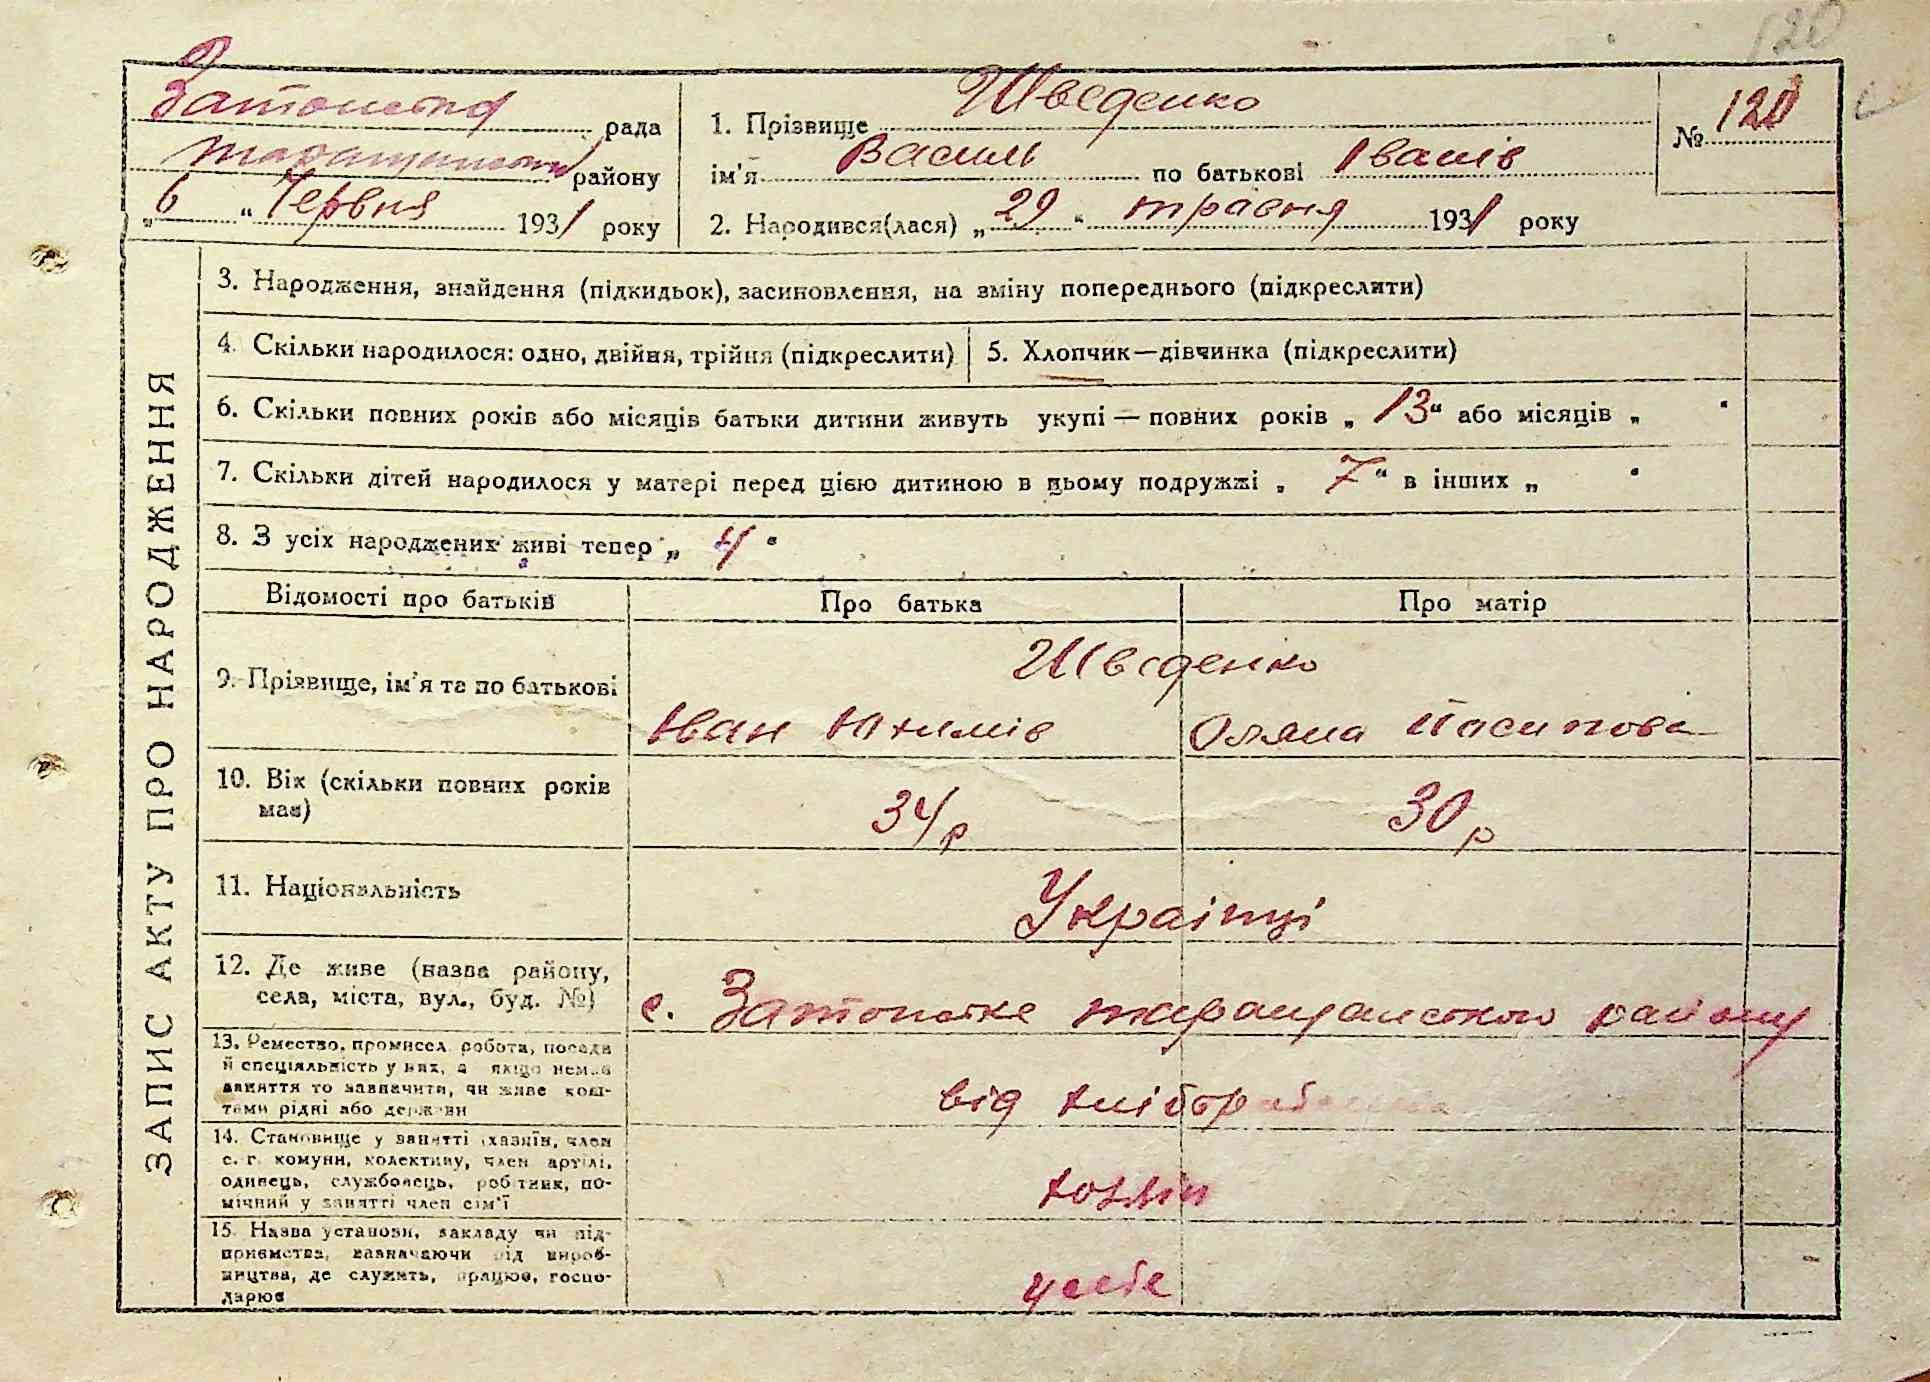 120
Затонська рада
Таращанського району
„6“ Червня 1931 року
1. Прізвище Шведенко
ім'я Василь по батькові Іванів
2. Народився(лася) „29“ травня 1931 року
№ 120
ЗАПИС АКТУ ПРО НАРОДЖЕННЯ
3. Народження, знайдення (підкидьок), засиновлення, на зміну попереднього (підкреслити)
4. Скільки народилося: одно, двійня, трійня (підкреслити)
5. Хлопчик—дівчинка (підкреслити)
6. Скільки повних років або місяців батьки дитини живуть укупі — повних років „13“ або місяців „ “
7. Скільки дітей народилося у матері перед цією дитиною в цьому подружжі „7“ в інших „ “
8. З усіх народжених живі тепер „4“
Відомості про батьків
Про батька
Про матір
9. Прізвище, ім'я та по батькові
Шведенко
Іван Юхимів
Оляна
10. Вік (скільки повних років
має)
34 р
30 р
11. Національність
Українці
12. Де живе (назва району,
села, міста, вул., буд. №)
с. району
13. Ремество, промисел, робота, посада
й спеціяльність у них, а якщо немає
заняття то зазначити, чи живе кош-
тами рідні або держави
від
14. Становище у занятті (хазяїн, член
с. г. комуни, колективу, член артілі,
одинець, службовець, робітник, по-
мічний у занятті член сім'ї
хозяін
15. Назва установи, закладу чи під-
приємства, зазначаючи від вироб-
ництва, де служить, працює, госпо-
дарює
у себе